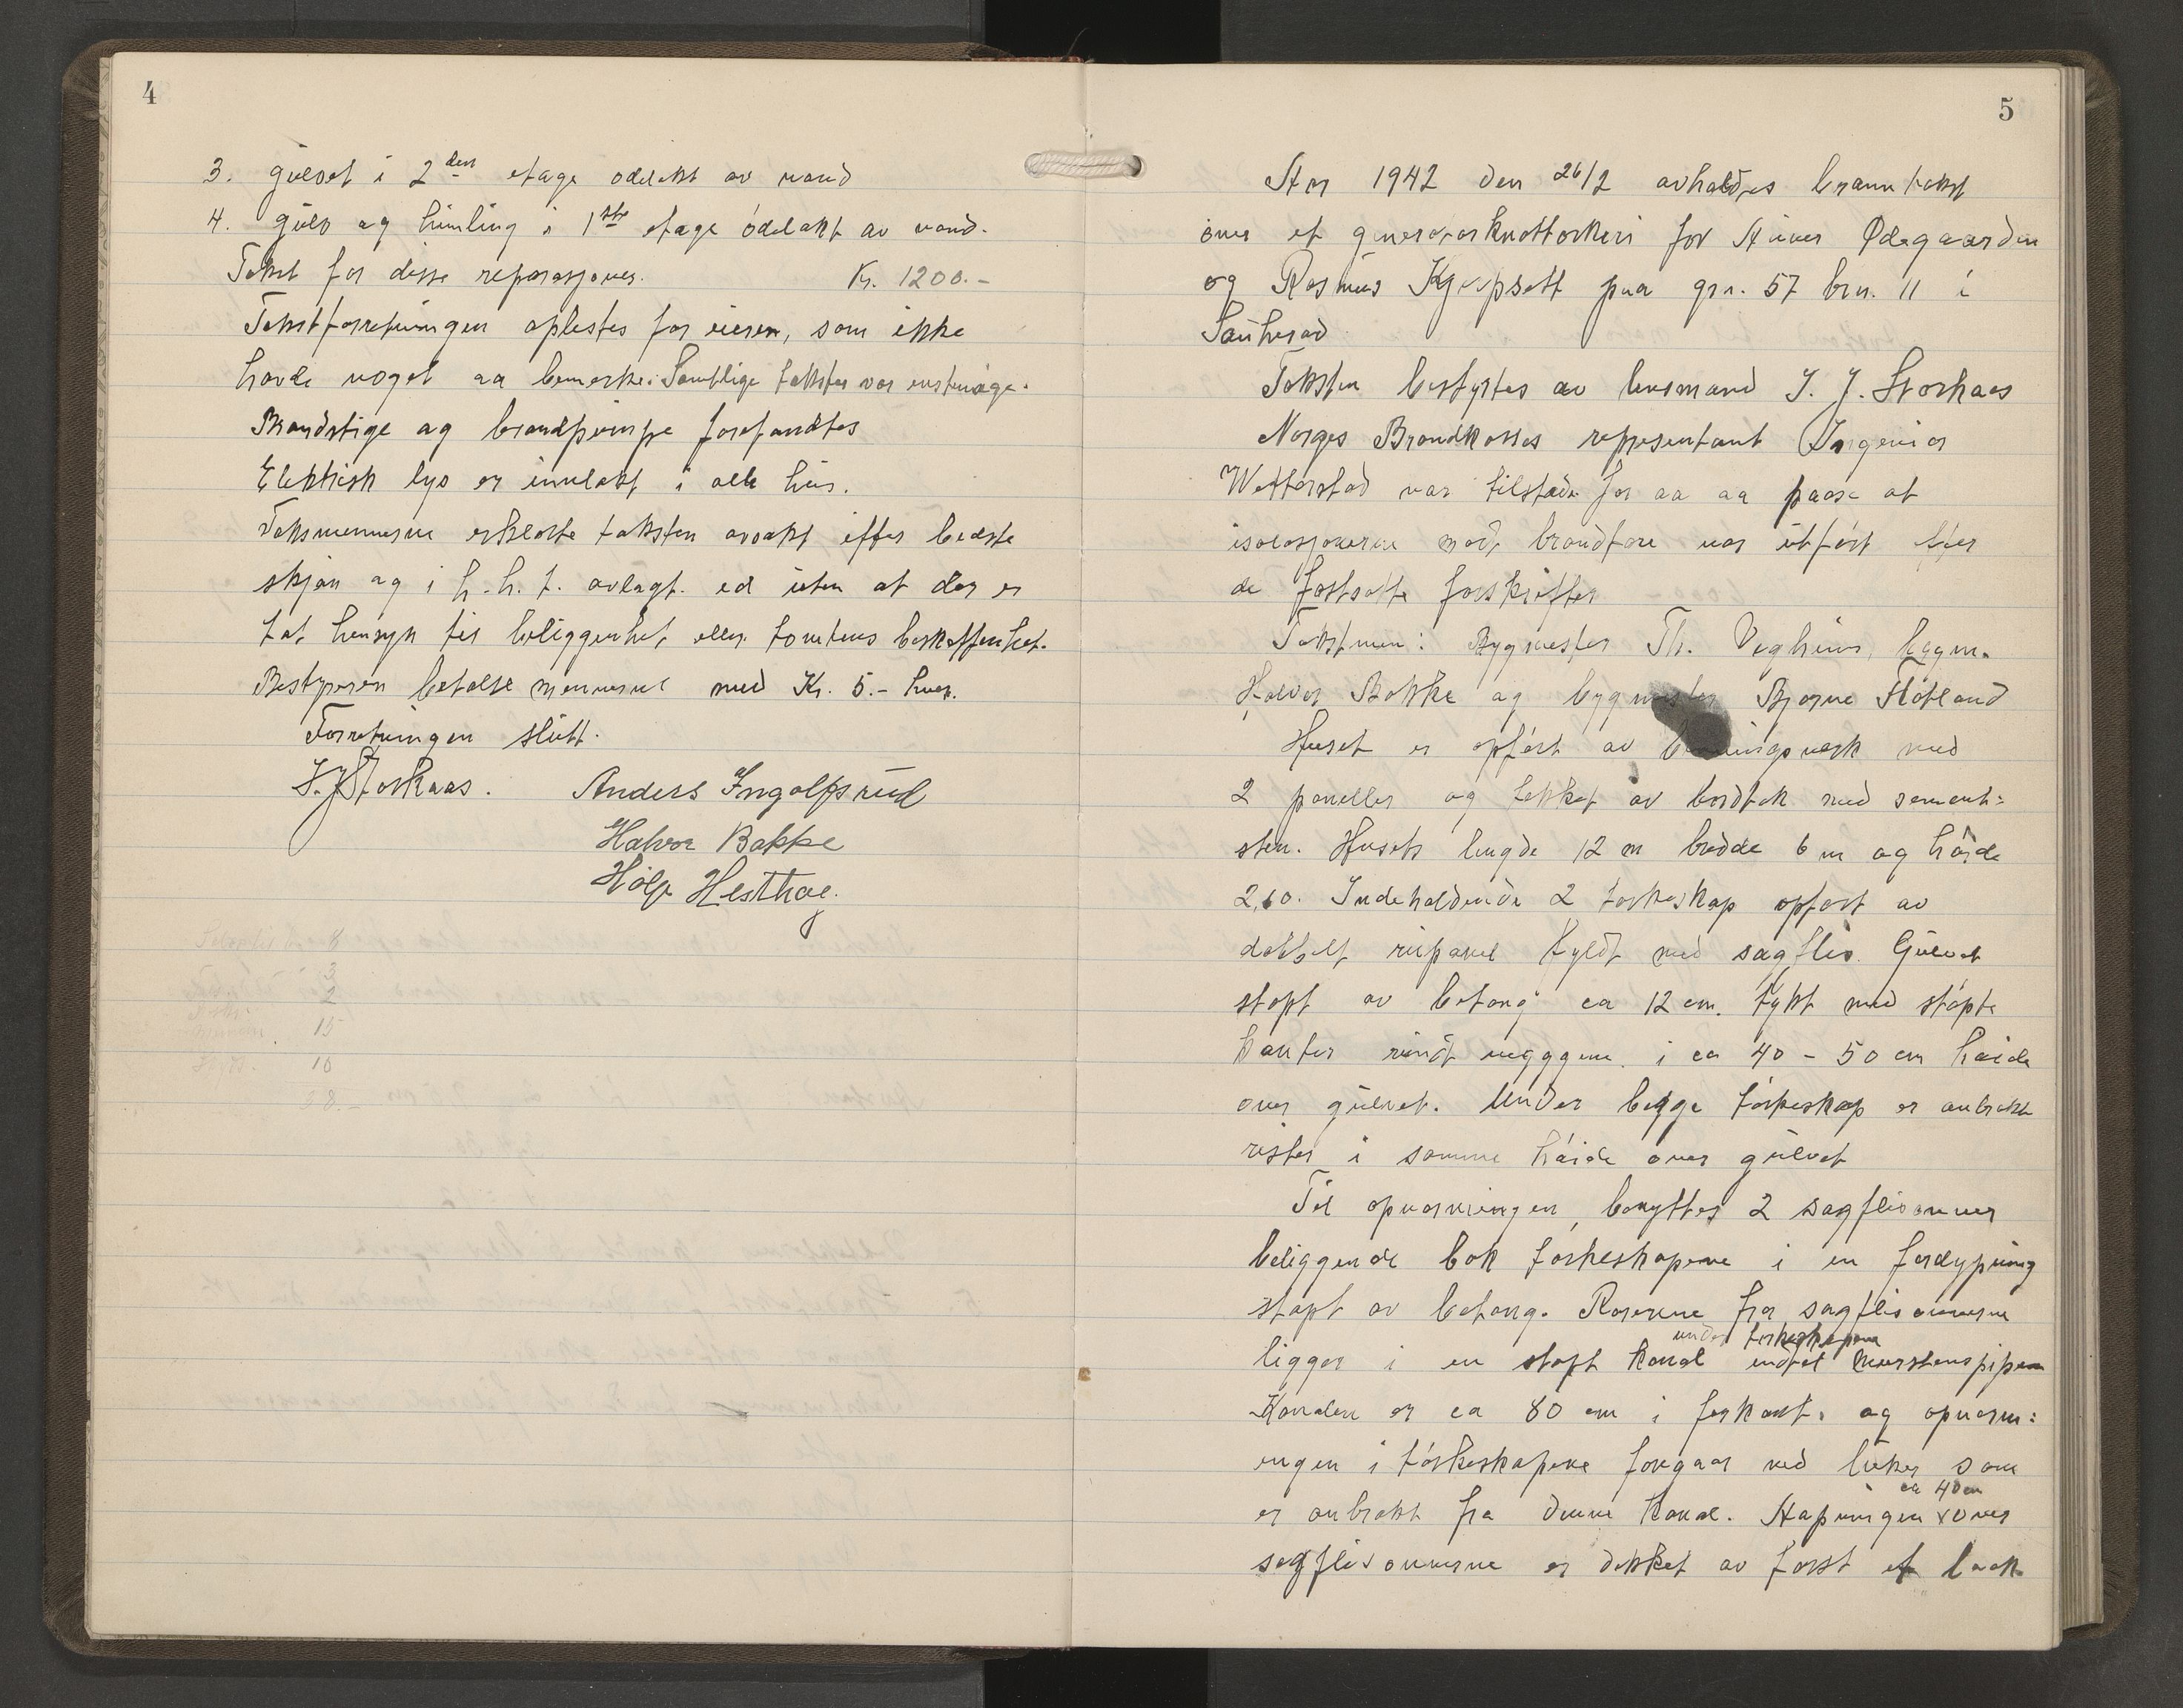 4
3. gulvet i 2den etage ødelakt av vand
4. gulv og himling i 1ste etage ødelakt av vand.
Takst for disse reparasjoner. Kr. 1200.-
Takstforretningen oplestes for eieren, som ikke
havde noget aa bemerke. Samtlige takster var enstemige.
Brandstige og brandpumpe forefandtes
Elektrisk lys er innlakt i alle hus.
Taksmennerne erklærte taksten avsakt efter bedste
skjøn og i h.h.t. avlagt ed uten at der er
tat hensyn til beliggenhet eller tomtens beskaffenhet.
Bestyreren betalte mennerne med Kr. 5.- hver.
Forretningen slutt.
S.J Storkaas. Anders Ingolfsrud
Halvor Bakke
Hølje Hesthag.
8
3
2
15
10
38.-
5
Aar 1942 den 26/2 avholdtes branntakst
over et generatorknottørkeri for Ødegaarden
og Rasmus paa grn. 57 brn. 11 i
Sauherad
Taksten bestyrtes av lensmand S. J. Storkaas
Norges Brandkasses representant Ingeniør
Wetterstad var tilstede for aa aa paase at
isolasjonerne mod brandfare var utført efter
de fastsatte forskrifter
Takstmen: Bygmester Th. Vegheim, bygm.
Halvor Bakke og bygmester Bjarne Fløtland
Huset er opført av bindingsverk med
2 paneller og tekket av bordtak med sement=
sten. Husets lengde 12 m bredde 6 m og høide
2,60. Indeholdende 2 tørkeskap opført av
dobbelt rupanel fyldt med sagflis. Gulvet
støpt av betong ca 12 cm. tykt med støpte
kanter rundt vegggene i ca 40 - 50 cm høide
over gulvet. Under begge tørkeskap er anbrakt
rister i samme høide over gulvet
Til opvarmingen, benyttes 2 sagflisovner
beliggende bak tørkeskapene i en fordypning
støpt av betong. Rørerne fra sagflisovnerne
under tørkeskapene
ligger i en støpt kanal indtil murstenspipen
Kanalen er ca 80 cm i firkant. og opvarm=
ingen i tørkeskapene foregaar ved luker som
ca 40 cm
er anbrakt fra denne kanal. Aapningen x over
sagflisovnerne er dekket av først et